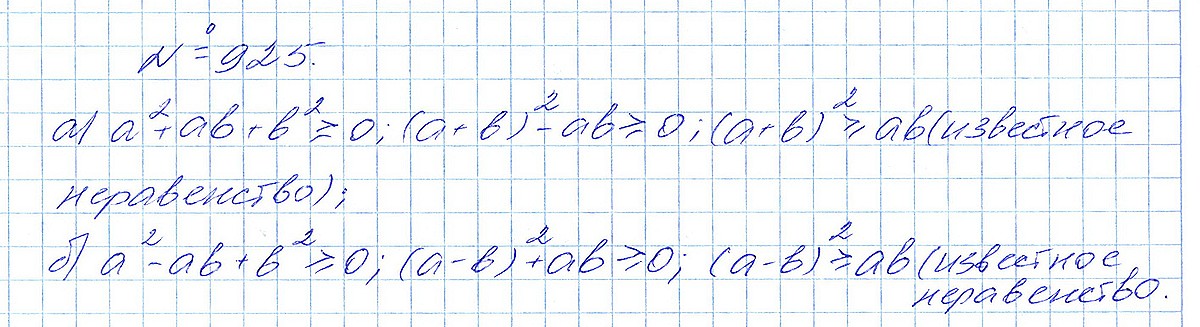 № 925.
а) a² + ab + b² ≥ 0; (a+b)² - ab ≥ 0; (a+b)² ≥ ab (известное
неравенство);
б) a² - ab + b² ≥ 0; (a-b)² + ab ≥ 0; (a-b)² ≥ ab (известное
неравенство.